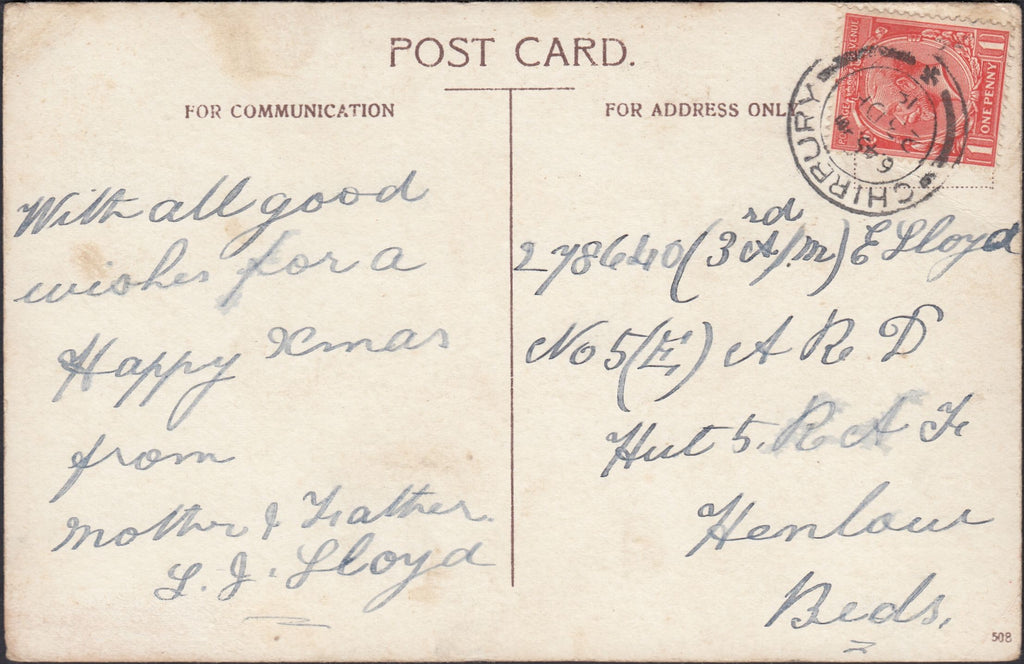 POST CARD.
FOR COMMUNICATION
FOR ADDRESS ONLY
ONE PENNY
1 1
CHIRBURY
6.45 PM
With all good
wishes for a
Happy Xmas
from
Mother & Father.
L. J. Lloyd
278640 (3rd A/m) E Lloyd
No 5 (E) A R D
Hut 5. R A F
Henlow
Beds.
508